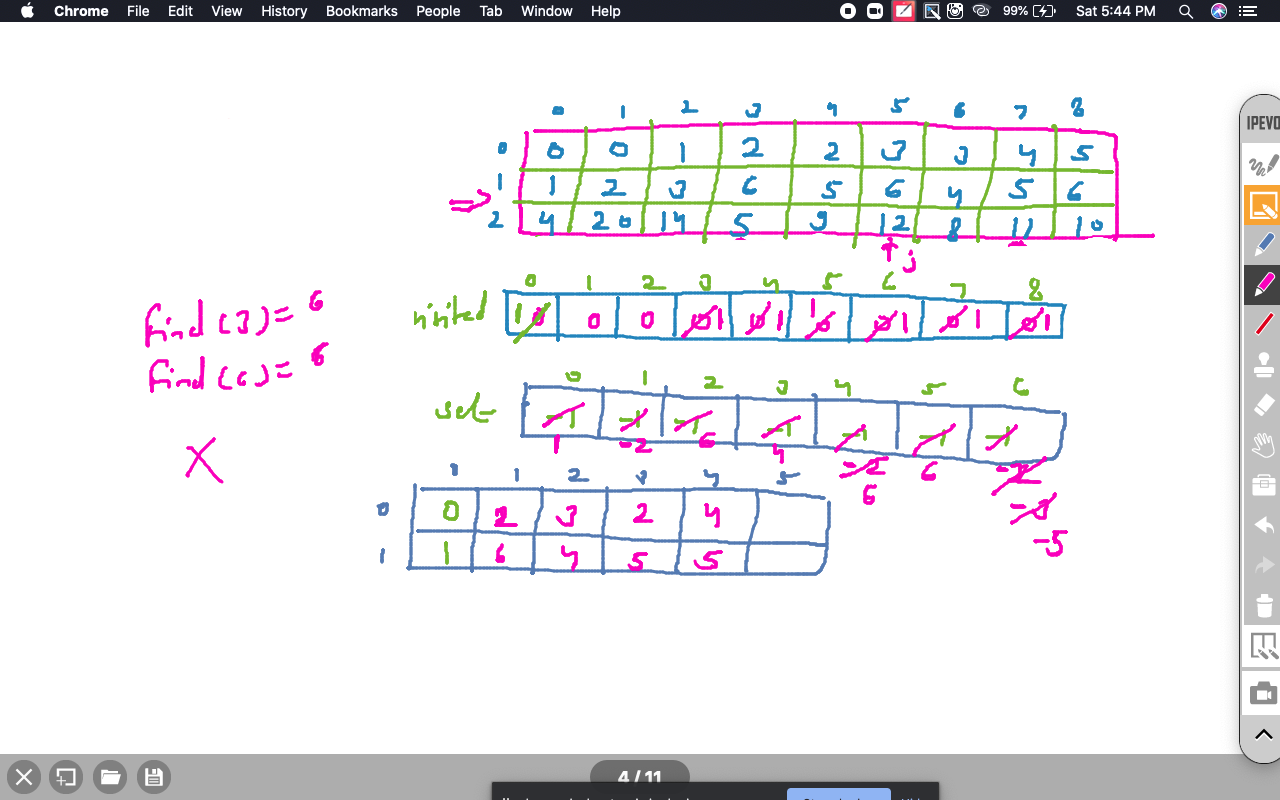 Chrome File Edit View History Bookmarks People Tab Window Help 99% Sat 5:44 PM
IPEVO
0 1 2 3 4 5 6 7 8
0 0 0 1 2 2 3 3 4 5
1 1 2 3 6 5 6 4 5 6
2 4 20 14 5 9 12 8 11 10
j
0 1 2 3 4 5 6 7 8
1 0 0 0 0 1 0 1 1 0 0 1 0 1 0 1
find (3) = 6
find (6) = 6
X
0 1 2 3 4 5 6
set -1 -1 -1 -1 -1 -1 -1
1 -2 6 4 -2 6 -2
6 -3
-5
0 1 2 3 4 5
0 0 2 3 2 4
1 1 6 4 5 5
4 / 11